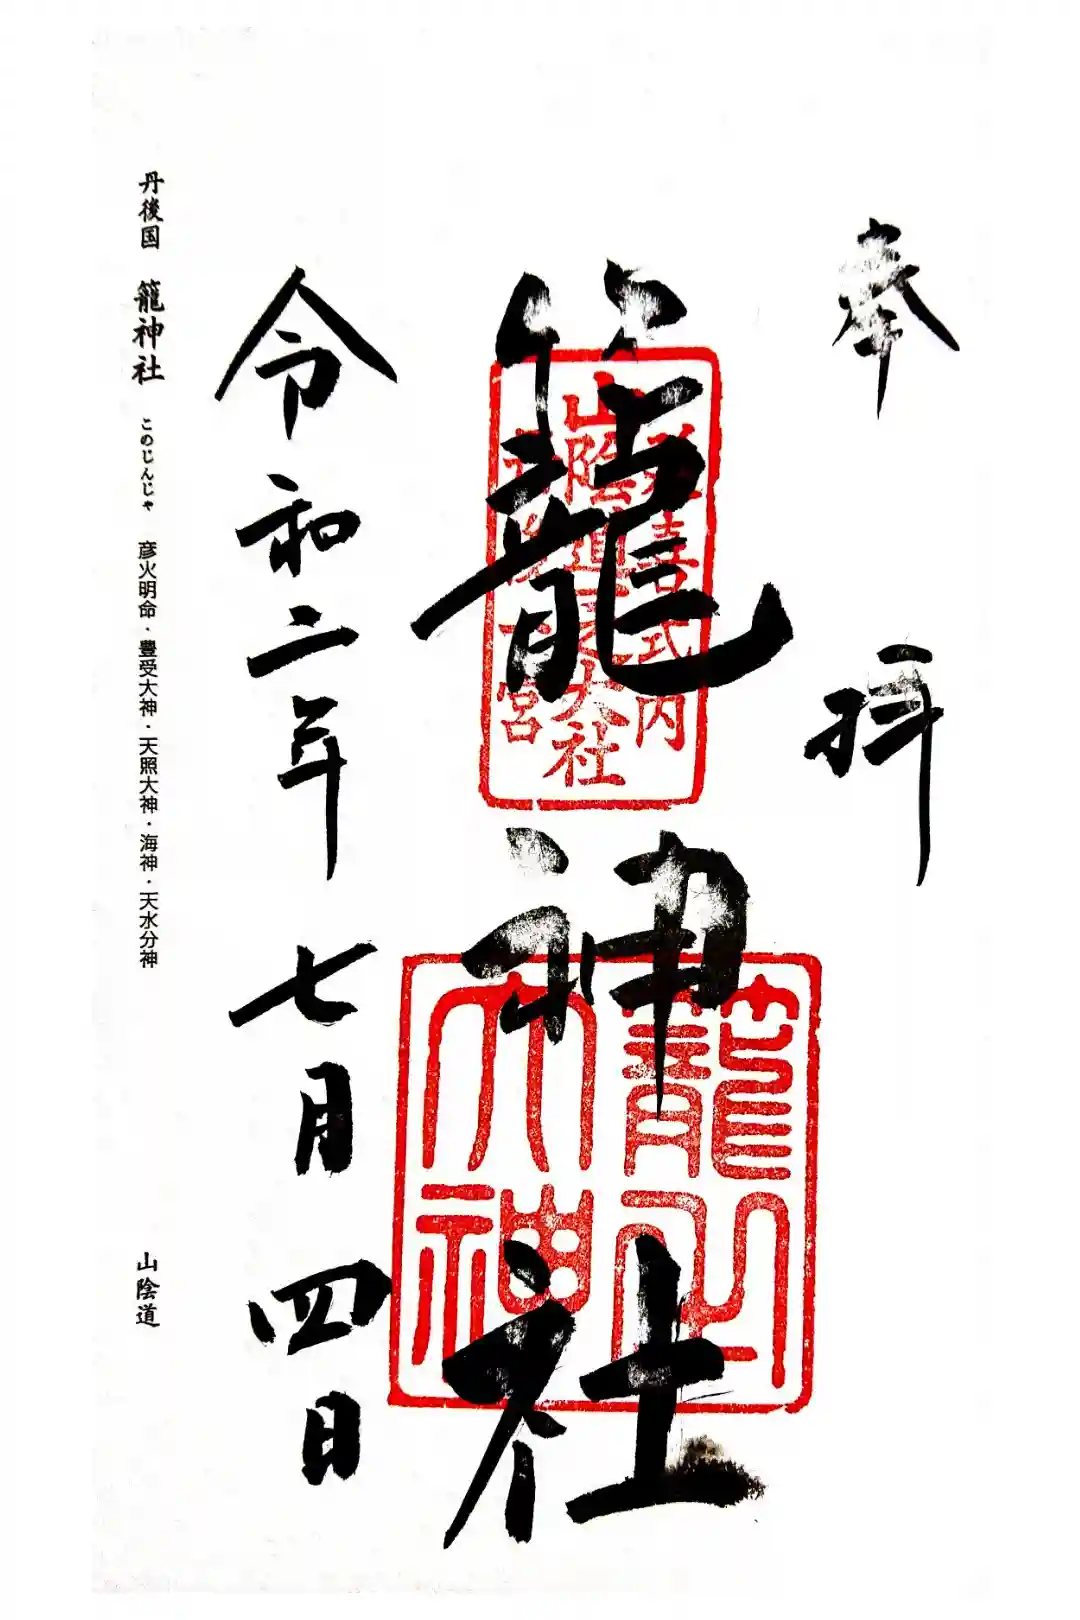 奉拝
籠神社
延喜式内
山陰道一之大社
一宮
籠之大神
令和二年七月四日
丹後国 籠神社 このじんじゃ 彦火明命・豊受大神・天照大神・海神・天水分神 山陰道